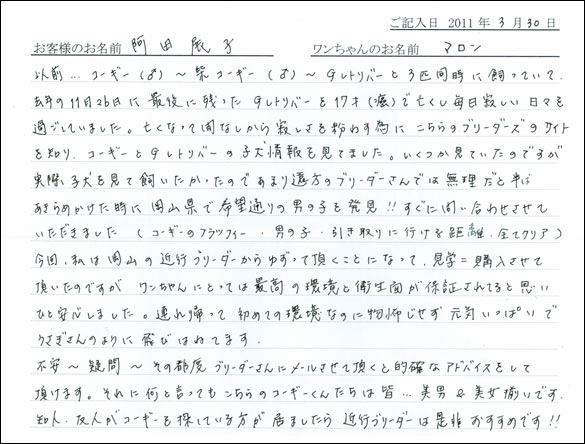 ご記入日 2011年 3月 30日
お客様のお名前 阿田 辰子 ワンちゃんのお名前 マロン
以前…コーギー(♂)～柴コーギー(♂)～Gレトリバーと3匹同時に飼っていて、
去年の11月26日に最後に残ったGレトリバーを17才(歳)で亡くし毎日寂しい日々を
過ごしていました。亡くなって間なしから寂しさを紛わす為にこちらのブリーダーズのサイト
を知り、コーギーとGレトリバーの子犬情報を見てました。いくつか見ていたのですが
実際、子犬を見て飼いたかったのであまり遠方のブリーダーさんでは無理だと半ば
あきらめかけた時に岡山県で希望通りの男の子を発見!!すぐに問い合わせさせて
いただきました(コーギーのフラッフィー・男の子・引き取りに行ける距離、全てクリア)
今回、私は岡山の近行ブリーダーからゆずって頂くことになって、見学=購入させて
頂いたのですが ワンちゃんにとっては最高の環境と衛生面が保証されてると思い
ひと安心しました。連れ帰って初めての環境なのに物怖じせず元気いっぱいで
うさぎさんのように飛びはねてます。
不安～疑問～その都度ブリーダーさんにメールさせて頂くと的確なアドバイスをして
頂けます。それに何と言ってもこちらのコーギーくんたちは皆…美男&美女揃いです。
知人、友人がコーギーを探している方が居ましたら近行ブリーダーは是非おすすめです!!